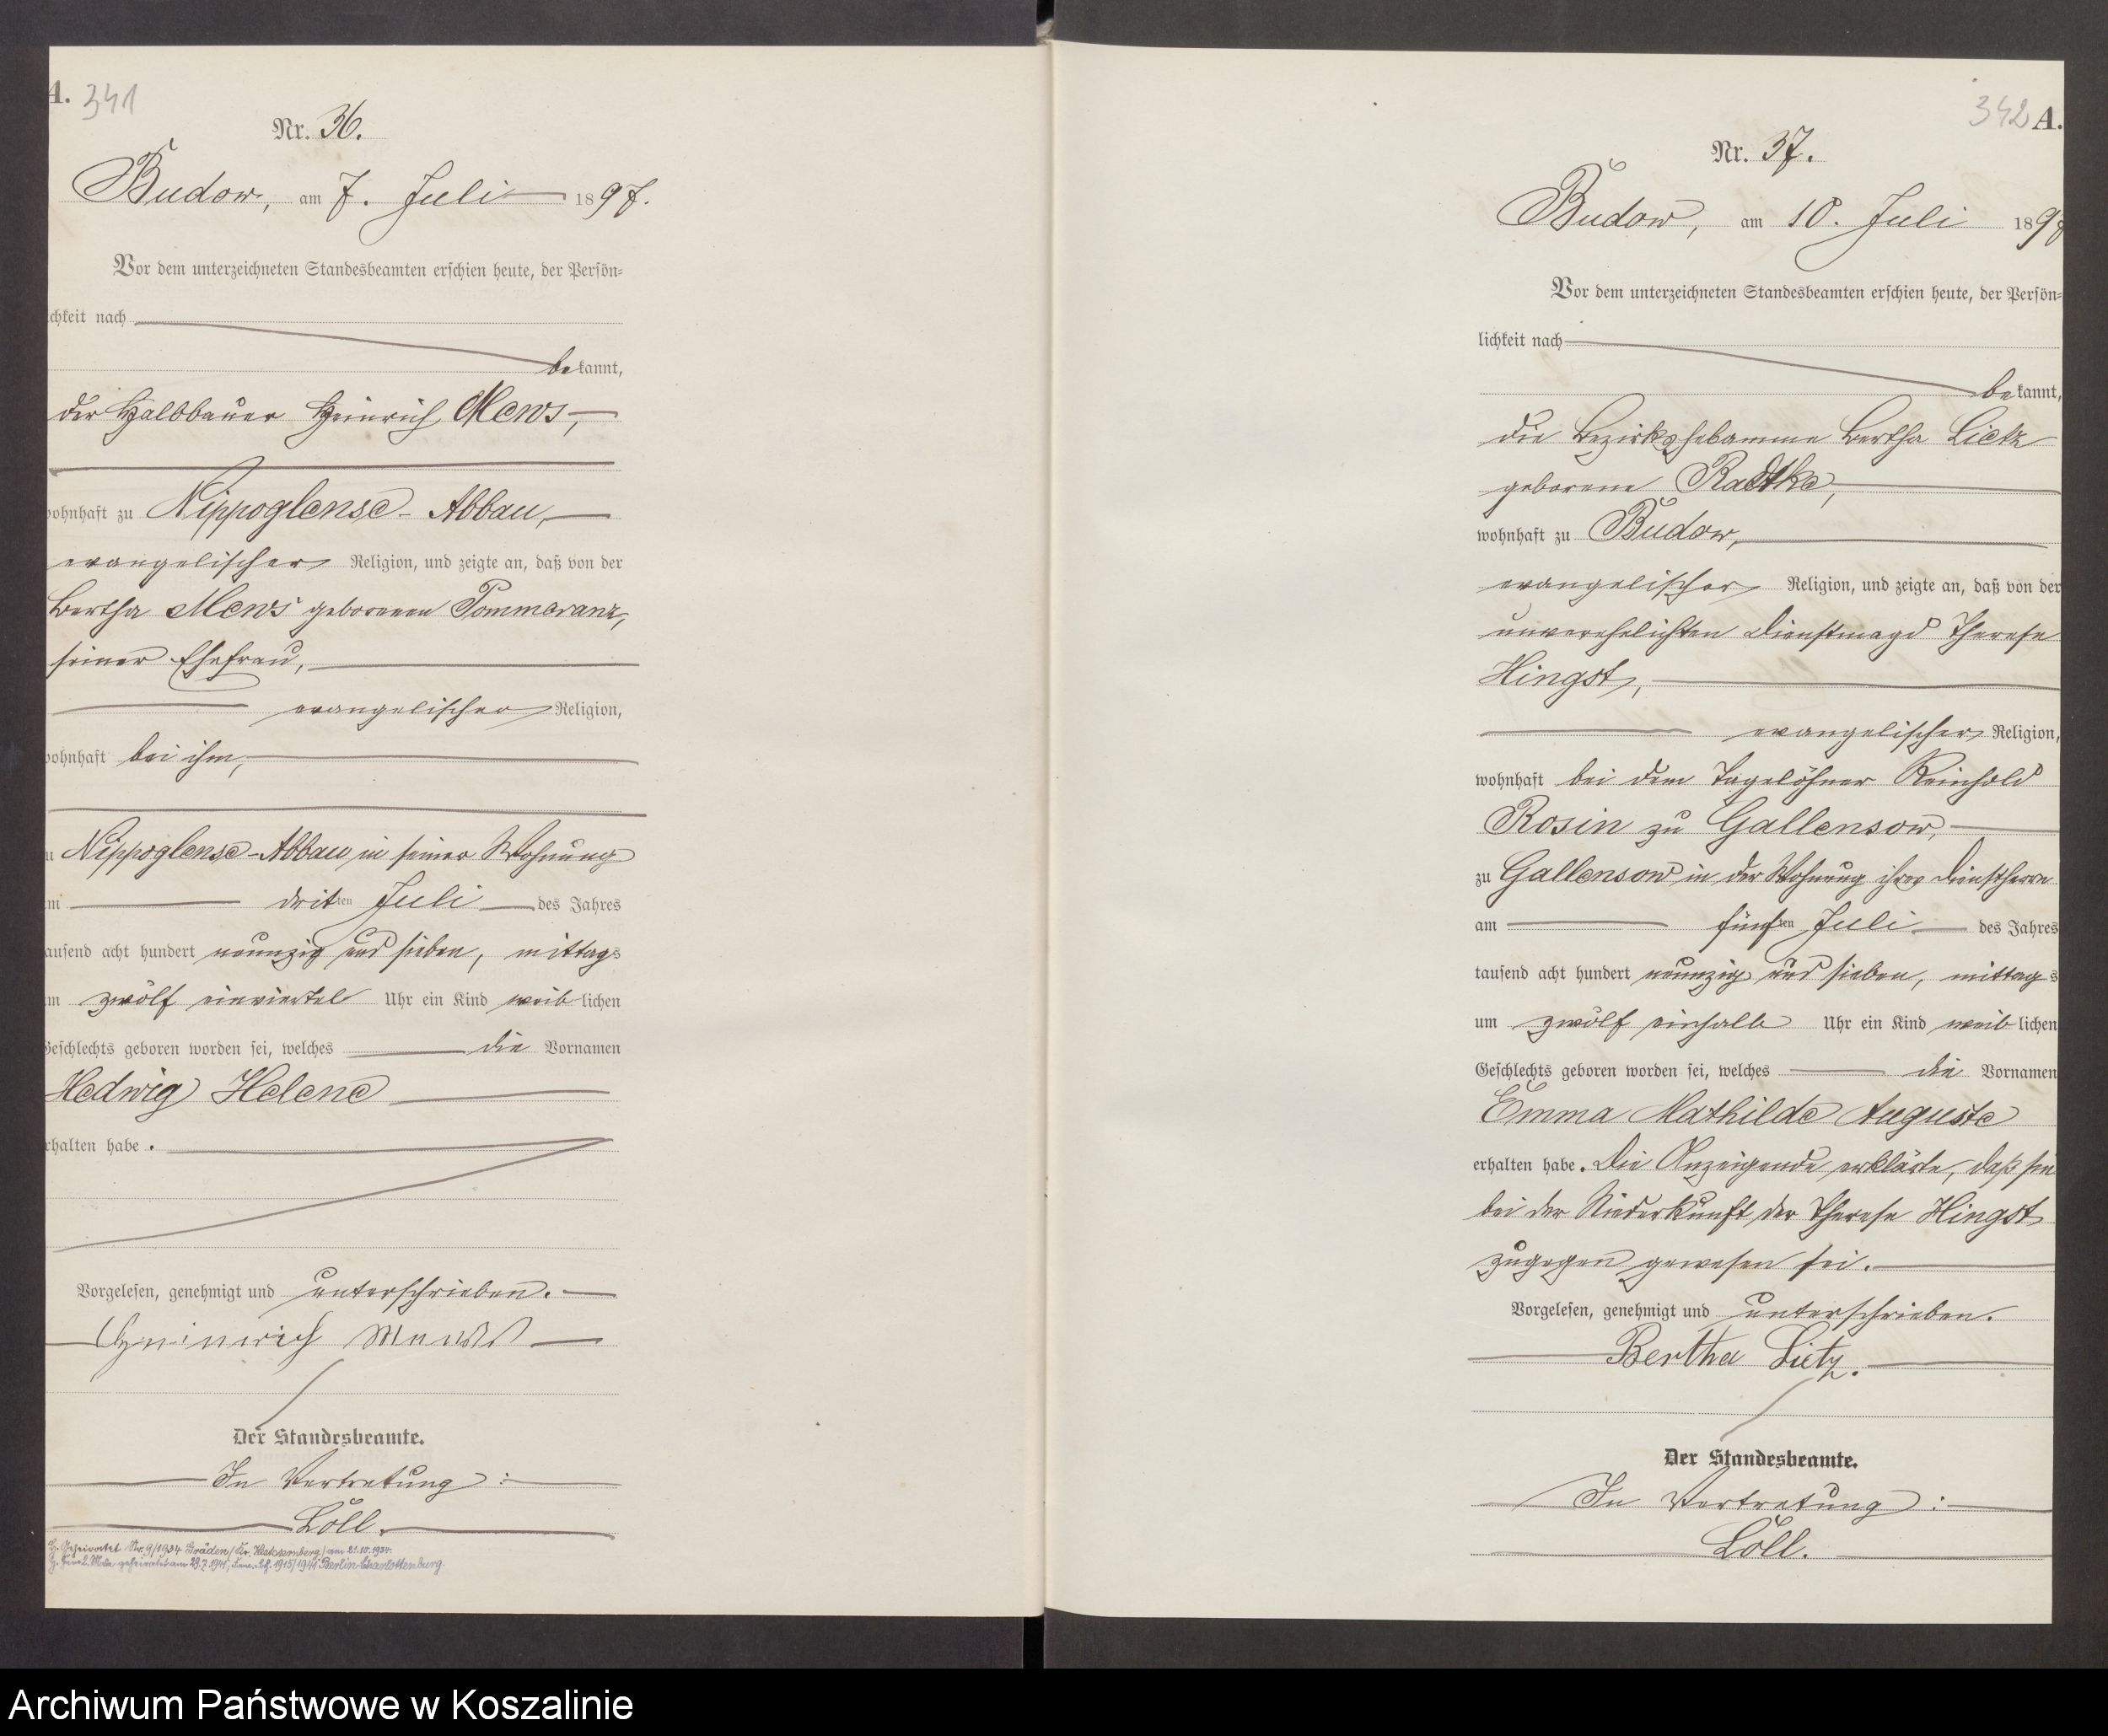 A. 341
Nr. 36.
Budow, am 7. Juli 1897.
Vor dem unterzeichneten Standesbeamten erschien heute, der Persön-
chkeit nach
bekannt,
der Halbbauer Heinrich Mews,
ohnhaft zu Nippoglense-Abbau,
evangelischer Religion, und zeigte an, daß von der
Bertha Mews geborenen Pommeranz,
seiner Ehefrau,
evangelischer Religion,
ohnhaft bei ihm,
u Nippoglense-Abbau in seiner Wohnung
m dritten Juli des Jahres
ausend acht hundert neunzig und sieben, mittags
m zwölf einviertel Uhr ein Kind weiblichen
Geschlechts geboren worden sei, welches die Vornamen
Hedwig Helene
rhalten habe.
Vorgelesen, genehmigt und unterschrieben.
Heinrich Mews
Der Standesbeamte.
In Vertretung:
Löll.
Geheiratet Nr. 9/1934 Gräden am 21.10.1934.
2. Male geheiratet am 29.7.1941, 1915/1941 Berlin-Charlottenburg.
342 A.
Nr. 37.
Budow, am 10. Juli 1897
Vor dem unterzeichneten Standesbeamten erschien heute, der Persön-
lichkeit nach
bekannt,
die Bezirkshebamme Bertha Lietz
geborene Radtke,
wohnhaft zu Budow,
evangelischer Religion, und zeigte an, daß von der
unverehelichten Dienstmagd Therese
Hingst,
evangelischer Religion,
wohnhaft bei dem Tagelöhner Reinhold
Rosin zu Gallensow,
zu Gallensow in der Wohnung ihres Dienstherrn
am fünften Juli des Jahres
tausend acht hundert neunzig und sieben, mittags
um zwölf einhalb Uhr ein Kind weiblichen
Geschlechts geboren worden sei, welches die Vornamen
Emma Mathilde Auguste
erhalten habe. Die Anzeigende erklärte, daß sie
bei der Niederkunft der Therese Hingst
zugegen gewesen sei.
Vorgelesen, genehmigt und unterschrieben.
Bertha Lietz.
Der Standesbeamte.
In Vertretung:
Löll.
Archiwum Państwowe w Koszalinie